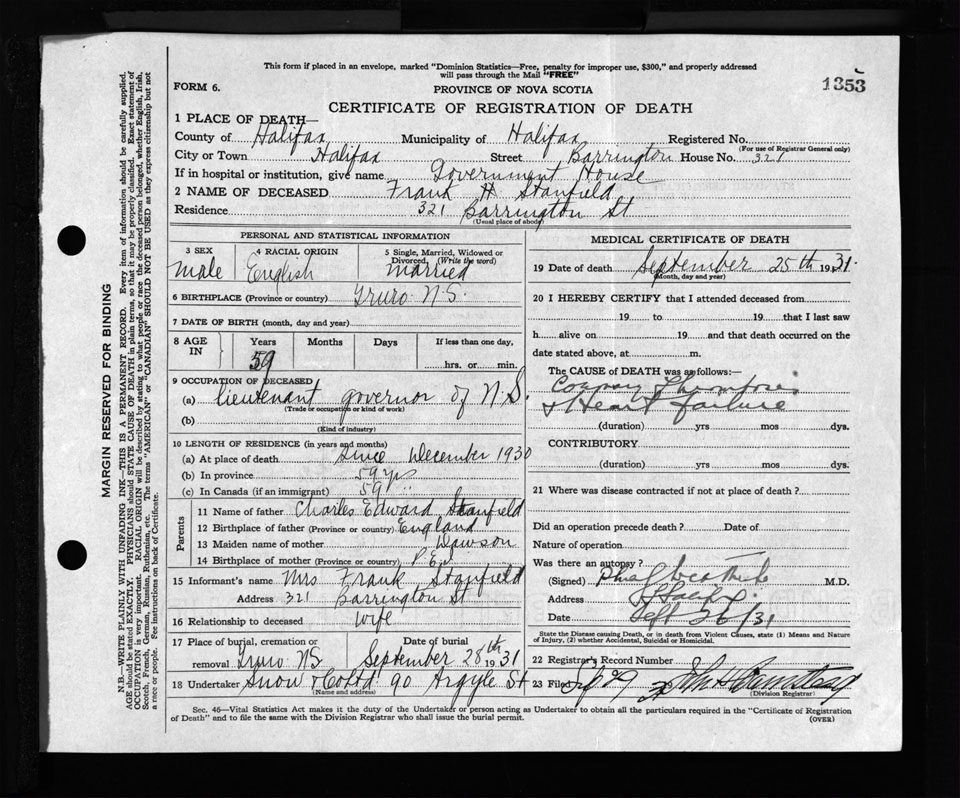 This form if placed in an envelope, marked "Dominion Statistics—Free, penalty for improper use, $300," and properly addressed
will pass through the Mail "FREE"
1353
FORM 6.
PROVINCE OF NOVA SCOTIA
CERTIFICATE OF REGISTRATION OF DEATH
1 PLACE OF DEATH—
County of Halifax Municipality of Halifax Registered No.
(For use of Registrar General only)
City or Town Halifax Street Barrington House No. 321
If in hospital or institution, give name Government House
2 NAME OF DECEASED Frank H Stanfield
Residence 321 Barrington St
(Usual place of abode)
PERSONAL AND STATISTICAL INFORMATION
3 SEX 4 RACIAL ORIGIN 5 Single, Married, Widowed or
Divorced, (Write the word)
male English married
6 BIRTHPLACE (Province or country) Truro N.S.
7 DATE OF BIRTH (month, day and year)
8 AGE IN Years Months Days If less than one day,
59 hrs. or min.
9 OCCUPATION OF DECEASED
(a) lieutenant governor of N.S.
(Trade or occupation or kind of work)
(b)
(Kind of industry)
10 LENGTH OF RESIDENCE (in years and months)
(a) At place of death since December 1930
(b) In province 59 yrs
(c) In Canada (if an immigrant) 59
Parents
11 Name of father Charles Edward Stanfield
12 Birthplace of father (Province or country) England
13 Maiden name of mother Dawson
14 Birthplace of mother (Province or country) P.E.I
15 Informant's name Mrs Frank Stanfield
Address 321 Barrington St
16 Relationship to deceased wife
17 Place of burial, cremation or Date of burial
removal Truro NS September 28th 1931
18 Undertaker Snow & Co Ltd 90 Argyle St
(Name and address)
MEDICAL CERTIFICATE OF DEATH
19 Date of death September 25th 1931
(Month, day and year)
20 I HEREBY CERTIFY that I attended deceased from
19 to 19 that I last saw
h alive on 19 and that death occurred on the
date stated above, at m.
The CAUSE of DEATH was as follows:—
Coronary Thrombosis
& Heart failure
(duration) yrs mos dys.
CONTRIBUTORY
(duration) yrs mos dys.
21 Where was disease contracted if not at place of death?
Did an operation precede death? Date of
Nature of operation
Was there an autopsy?
(Signed) M.D.
Address Halifax
Date Sept 26/31
State the Disease causing Death, or in death from Violent Causes, state (1) Means and Nature
of Injury, (2) whether Accidental, Suicidal or Homicidal.
22 Registrar's Record Number
23 Filed
(Division Registrar)
Sec. 46—Vital Statistics Act makes it the duty of the Undertaker or person acting as Undertaker to obtain all the particulars required in the "Certificate of Registration
of Death" and to file the same with the Division Registrar who shall issue the burial permit.
(OVER)
MARGIN RESERVED FOR BINDING
N.B.—WRITE PLAINLY WITH UNFADING INK—THIS IS A PERMANENT RECORD. Every item of information should be carefully supplied.
AGE should be stated EXACTLY. PHYSICIANS should STATE CAUSE OF DEATH in plain terms, so that it may be properly classified. Exact statement of
OCCUPATION is very important. RACIAL ORIGIN will be described by stating to what people or race the deceased person belonged, whether English, Irish,
Scotch, French, German, Russian, Ruthenian, etc. The terms "AMERICAN" or "CANADIAN" SHOULD NOT BE USED as they express citizenship but not
a race or people. See instructions on back of Certificate.